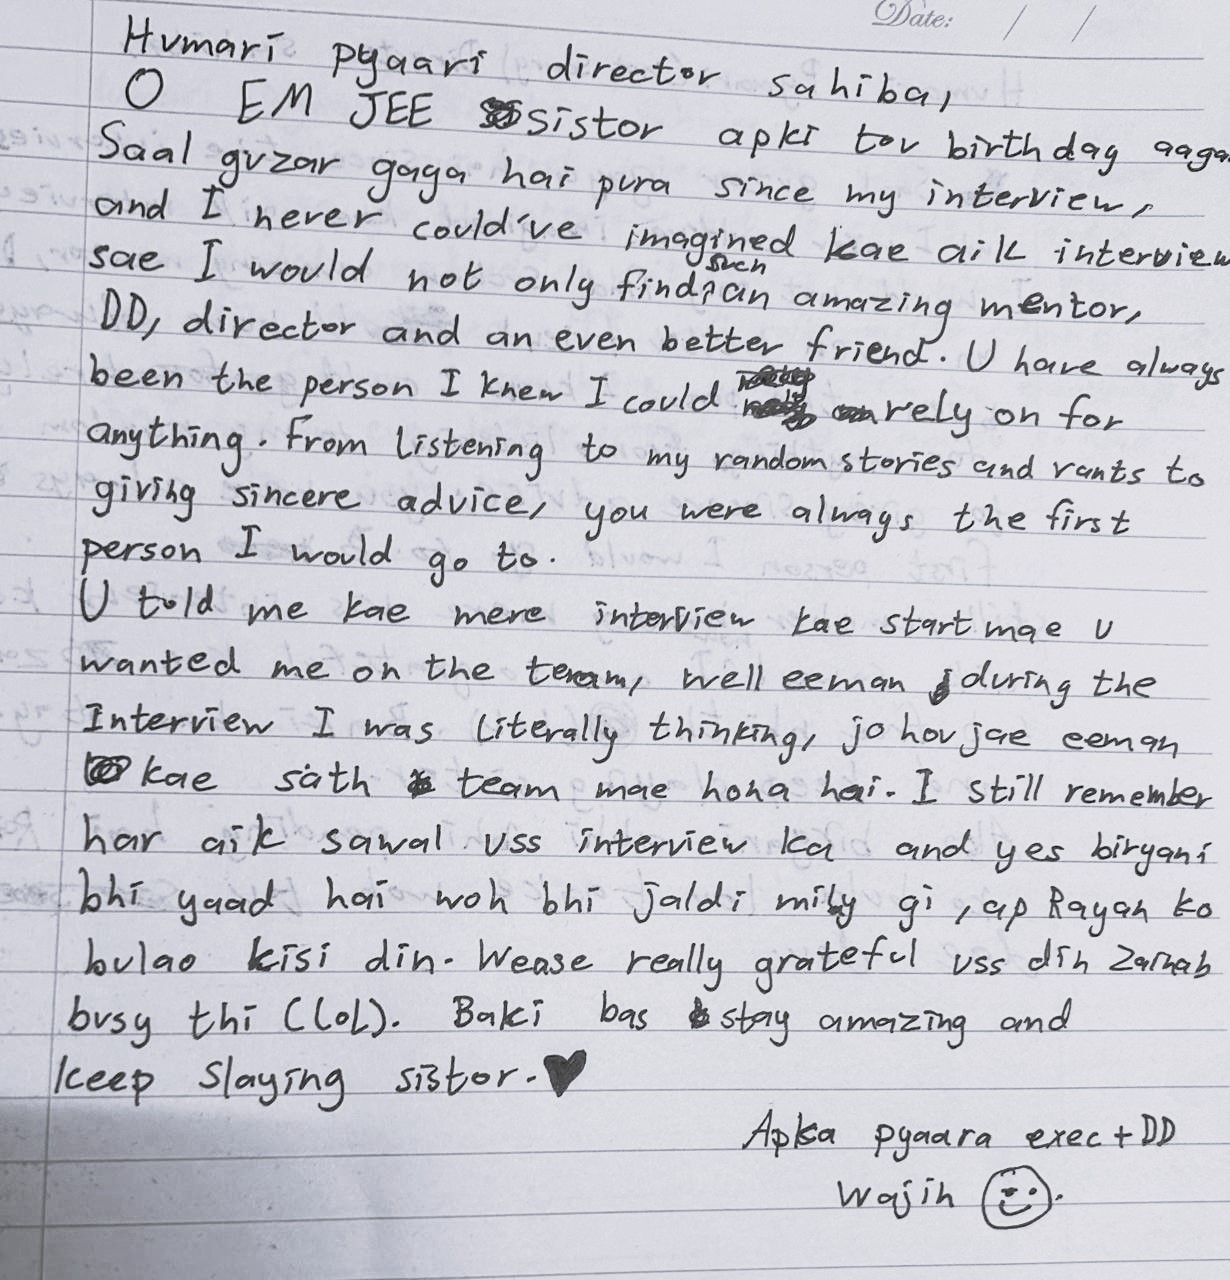 Date: / /
Humari pyaari director sahiba,
O EM JEE sistor apki tou birthday aaga
Saal guzar gaya hai pura since my interview,
and I never could've imagined kae aik interview
sae I would not only find such an amazing mentor,
DD, director and an even better friend. U have always
been the person I knew I could rely on for
anything. From listening to my random stories and rants to
giving sincere advice, you were always the first
person I would go to.
U told me kae mere interview kae start mae u
wanted me on the team, well eeman during the
Interview I was literally thinking, jo hou jae eeman
kae sath team mae hona hai. I still remember
har aik sawal uss interview ka and yes biryani
bhi yaad hai woh bhi jaldi mily gi, ap Rayan ko
bulao kisi din. Wease really grateful uss din Zainab
busy thi (LOL). Baki bas stay amazing and
keep slaying sistor. ♥
Apka pyaara exec + DD
Wajih